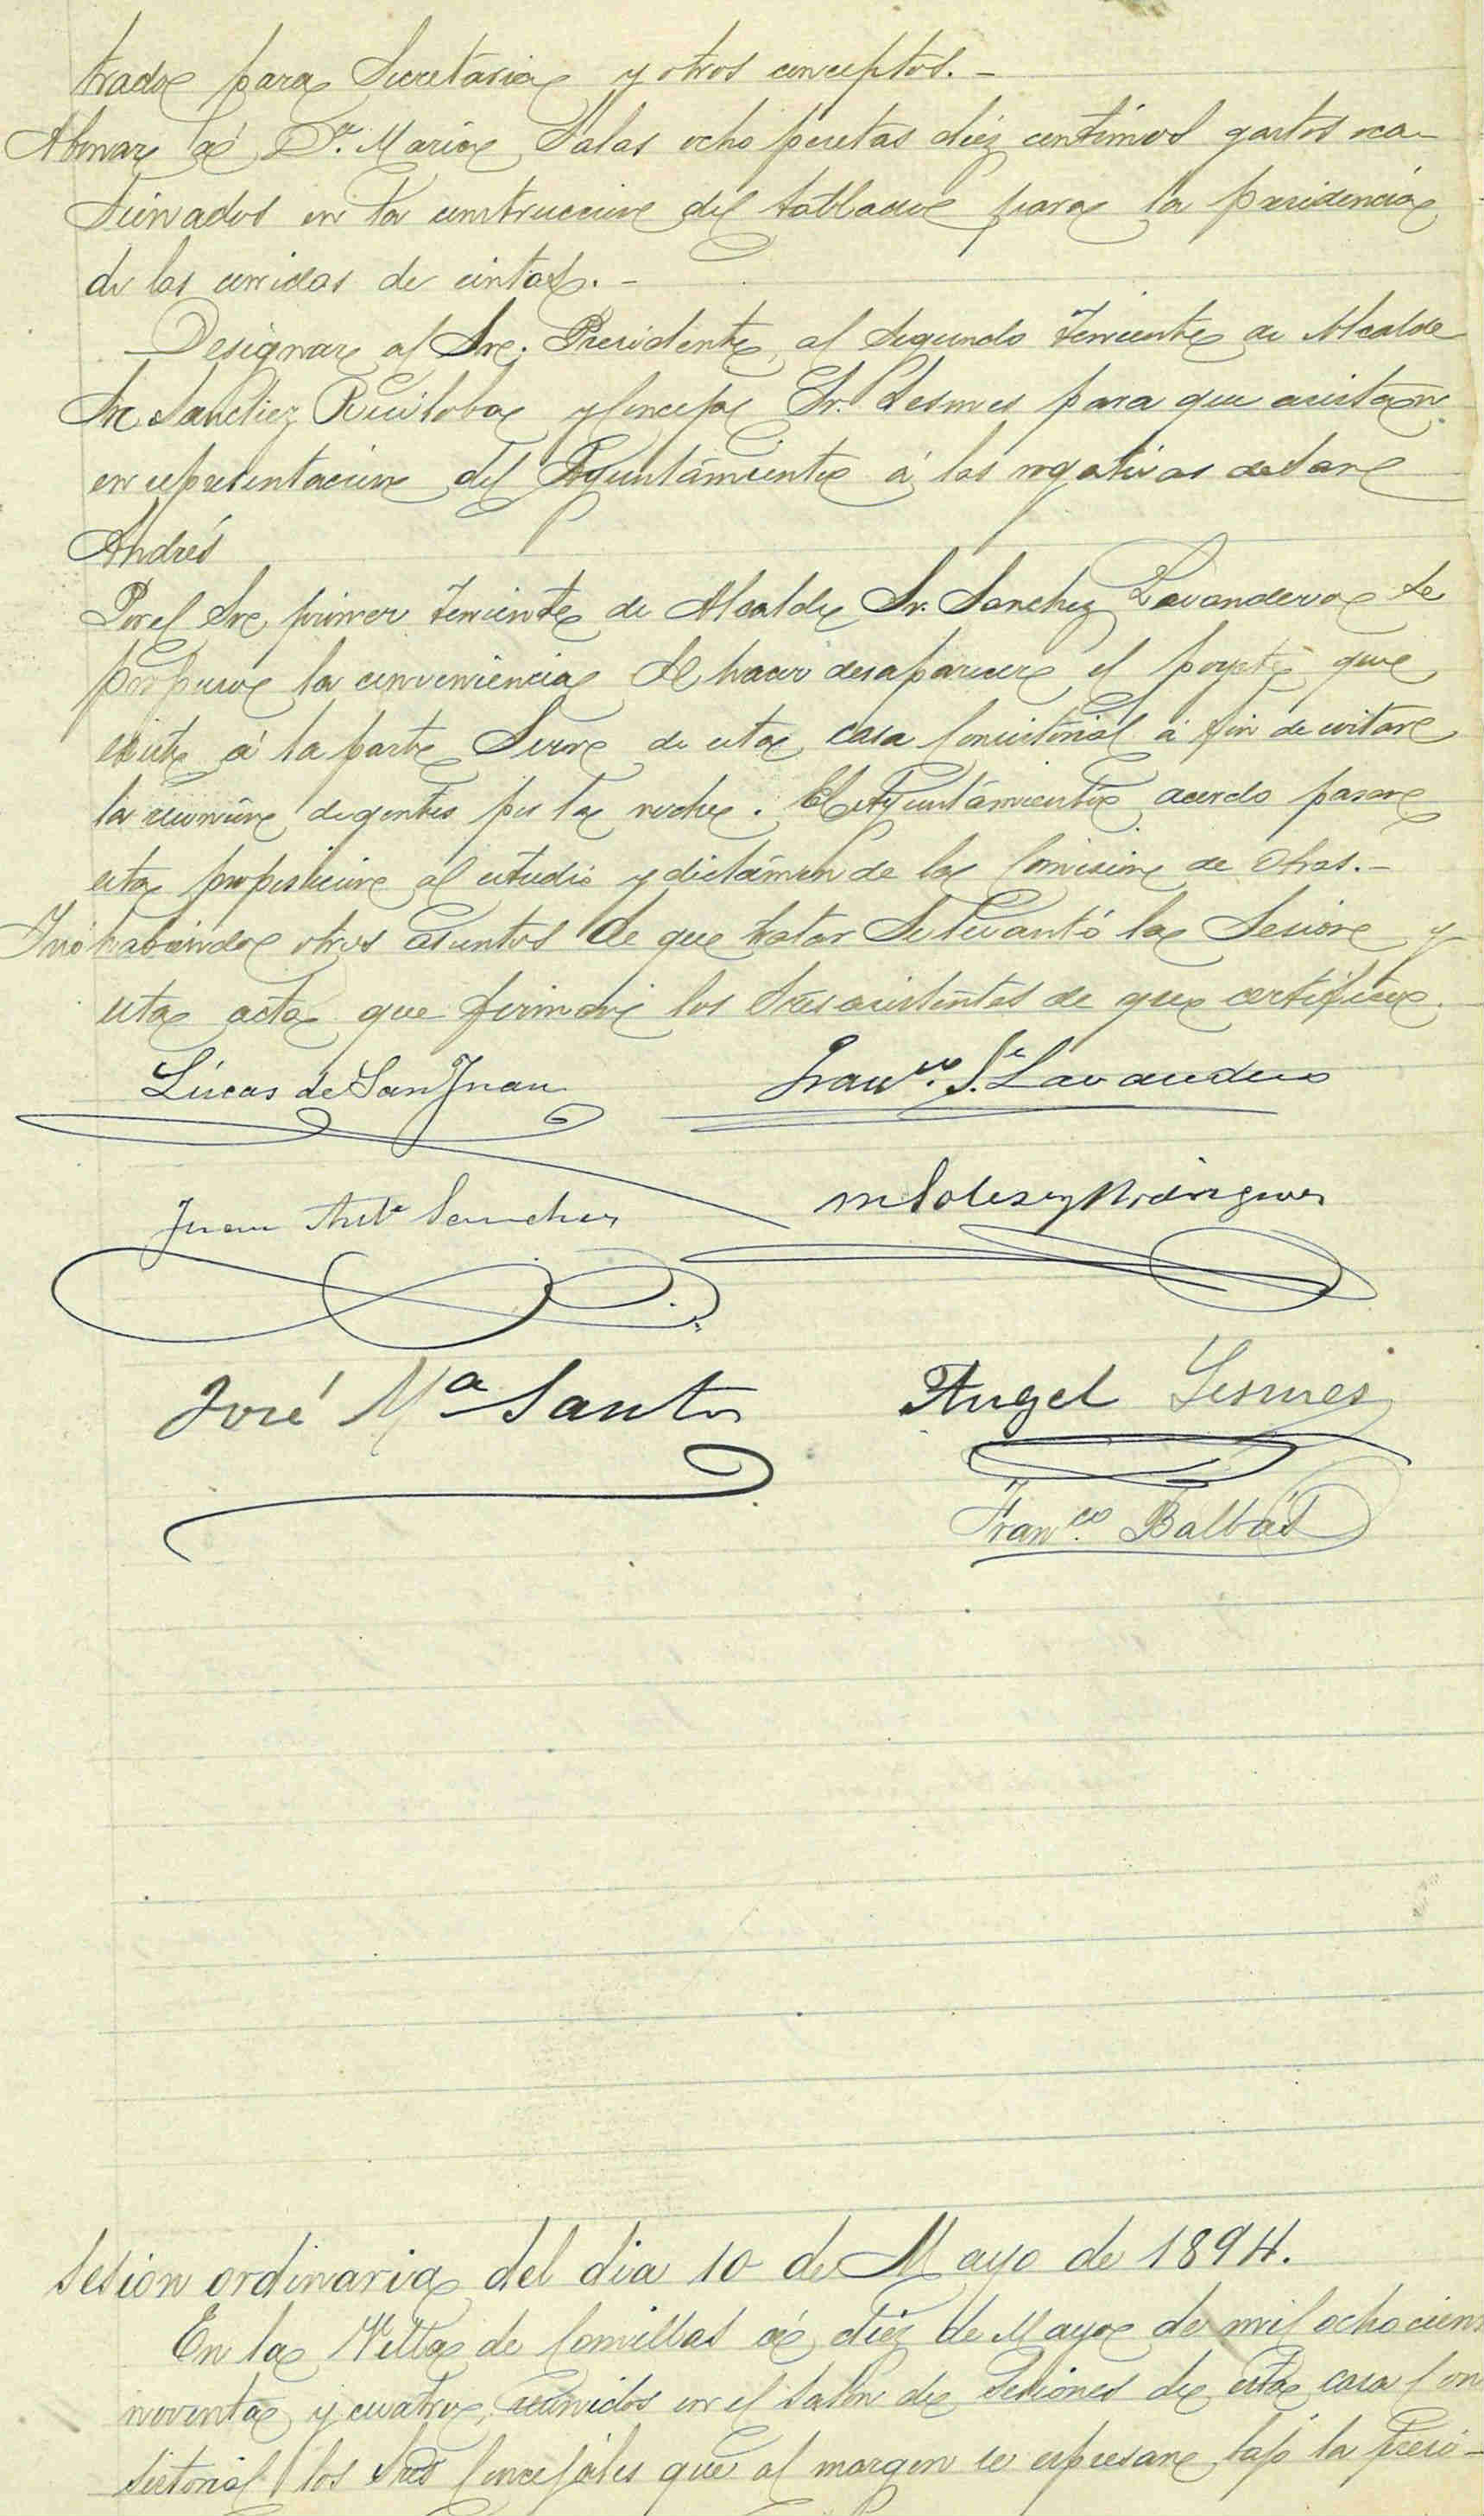 trado para Secretaria y otros conceptos.-
Abonar á D.ª Maria Salas ocho pesetas diez centimos gastos oca-
sionados en la construccion del tablado para la presidencia
de las corridas de cintas.-
Designar al Sr. Presidente, al Segundo Teniente de Alcalde
Sr Sanchez Ruiloba y Concejal Sr. Lesmes para que asistan
en representacion del Ayuntamiento á las rogativas de San
Andrés
Por el Sr primer Teniente de Alcalde Sr. Sanchez Lavandero se
propuso la conveniencia de hacer desaparecer el poyete que
existe á la parte Sur de esta casa Consistorial á fin de evitar
la reunion de gentes por la noche. El Ayuntamiento acordo pasar
esta proposicion al estudio y dictámen de la Comision de Obras.-
Y no habiendo otros asuntos de que tratar se levantó la Sesion y
esta acta que firman los Sres asistentes de que certifico.
Lúcas de San Juan Fran.co S. Lavandero
Juan Ant.º Sanchez Rodriguez
José M.ª Santos Angel Lesmes
Fran.co Balbás
Sesión ordinaria del dia 10 de Mayo de 1894.
En la Villa de Comillas á diez de Mayo de mil ochocien
noventa y cuatro, reunidos en el Salón de Sesiones de esta casa Con
sistorial los Sres Concejales que al margen se espresan bajo la presi-